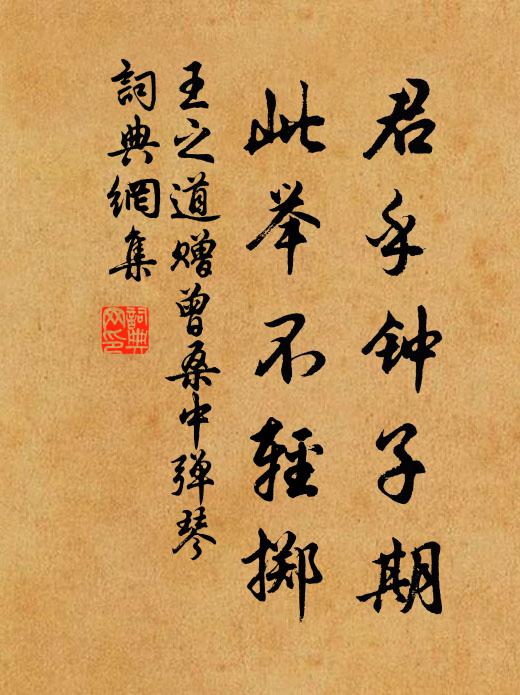 君乎钟子期
此举不輕掷
王之道赠曾桑中弹琴
詞典網集
詞典网印